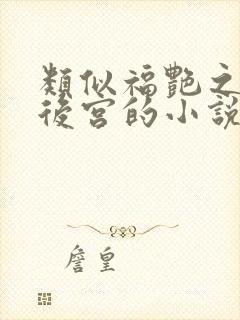 類似福艷之
後宮的小說
詹皇